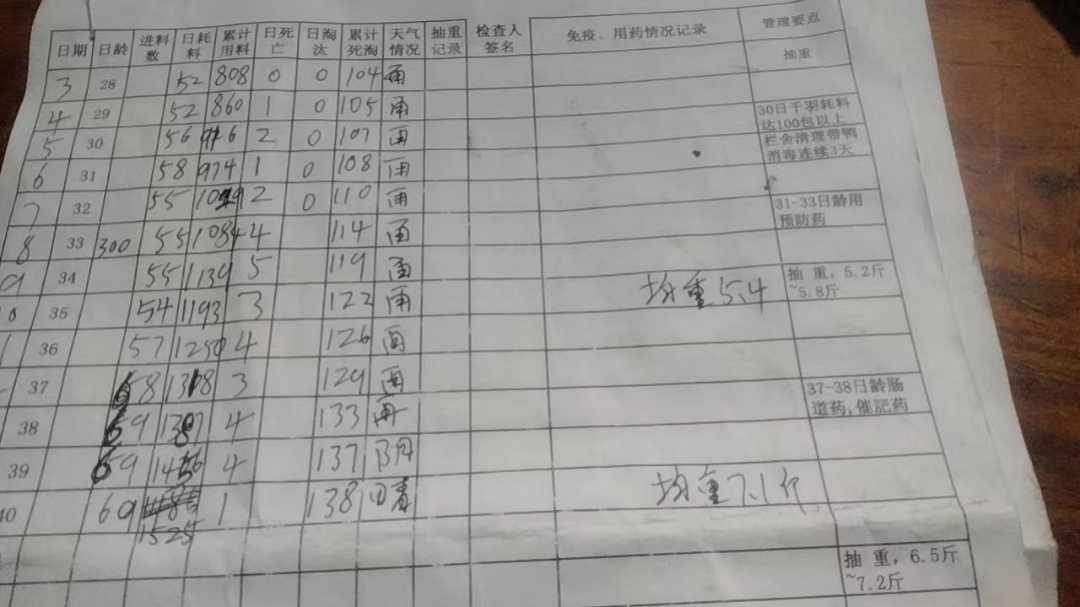 日期 日龄 进料数 日耗料 累计用料 日死亡 日淘汰 累计死淘 天气情况 抽重记录 检查人签名 免疫、用药情况记录 管理要点
抽重
3 28 52 808 0 0 104 雨
4 29 52 860 1 0 105 雨 30日千羽耗料达100包以上
5 30 56 916 2 0 107 雨 栏舍清理带鸭消毒连续3天
6 31 58 974 1 0 108 雨
7 32 55 1029 2 0 110 雨 31-33日龄用预防药
8 33 300 55 1084 4 114 雨
9 34 55 1139 5 119 雨 均重5.4 抽重，5.2斤~5.8斤
35 54 1193 3 122 雨
36 57 1250 4 126 雨
37 68 1318 3 129 雨 37-38日龄肠道药,催肥药
38 69 1387 4 133 雨
39 69 1456 4 137 阴
40 69 1525 1 138 晴 均重7.1斤
抽重，6.5斤~7.2斤